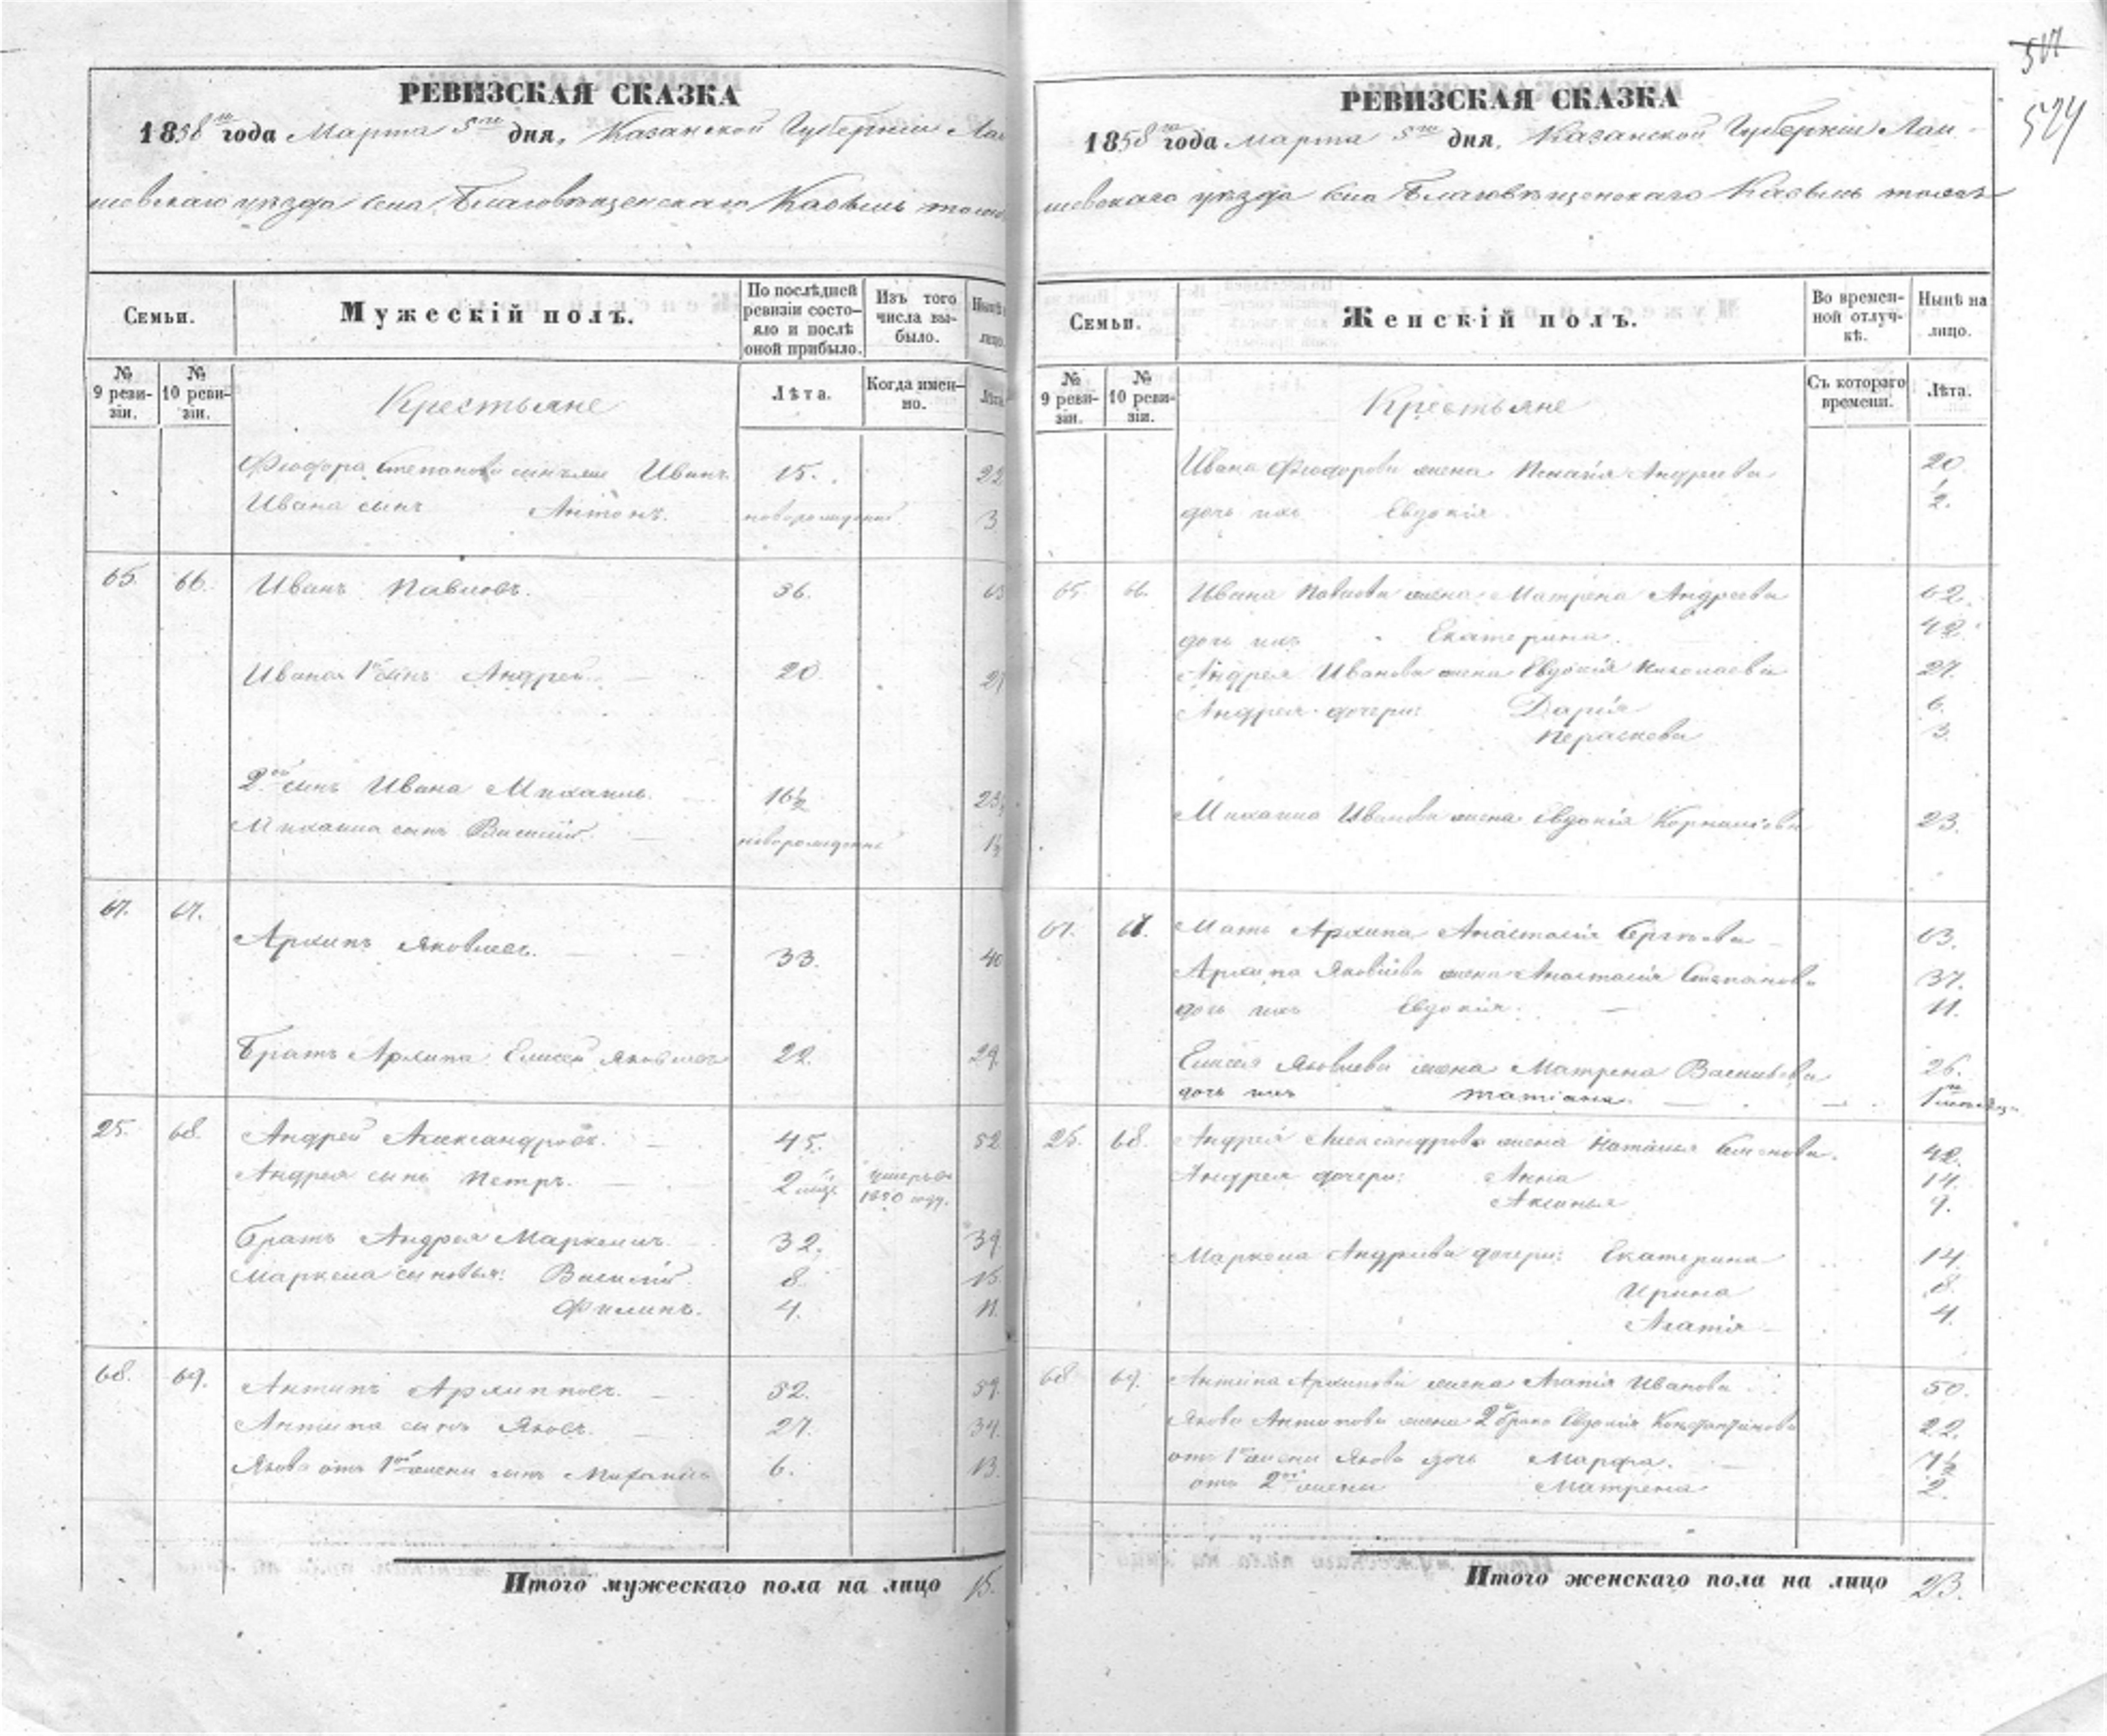 РЕВИЗСКАЯ СКАЗКА
1858го года Марта 5го дня, Казанской Губернии Лаи
шевскаго уѣзда села Благовѣщенскаго Касымь тожъ
Семьи.
Мужескій полъ.
По послѣдней ревизіи состояло и послѣ оной прибыло.
Изъ того числа выбыло.
Нынѣ
лицо.
№ 9 ревизіи.
№ 10 ревизіи.
Крестьяне
Лѣта.
Когда именно.
Лѣта
Феодора Степанова сынъ Иванъ 15. 22
Ивана сынъ Антонъ. новорожденный 3
65. 66. Иванъ Павловъ. 36.
Ивана 1й сынъ Андрей 20
2ой сынъ Ивана Михаилъ 16½ 23
Михаила сынъ Василій новорожденный 1½
67. 67.
Архипъ Яковлевъ. 33. 40
Братъ Архипа Елисей Яковлевъ 22. 29
25. 68. Андрей Александровъ. 45. 52
Андрея сынъ Петръ. 2 мѣс. умеръ въ 1850 году.
Братъ Андрея Маркелъ 32. 39
Маркела сыновья: Василій 8. 15.
Филипъ. 4. 11.
68. 69. Антипъ Архиповъ. 52. 59.
Антипа сынъ Яковъ. 27. 34.
Якова отъ 1ой жены сынъ Михаилъ 6. 13.
Итого мужескаго пола на лицо 15.
517
524
РЕВИЗСКАЯ СКАЗКА
1858го года марта 5го дня, Казанской Губерніи Лаи-
шевскаго уѣзда села Благовѣщенскаго Касымь тожъ
Семьи.
Женскій полъ.
Во временной отлучкѣ.
Нынѣ на лицо.
№ 9 ревизіи.
№ 10 ревизіи.
Крестьяне
Съ котораго времени.
Лѣта.
Ивана Феодорова жена Андреева 20.
дочь ихъ Евдокія ½.
65. 66. Ивана Павлова жена Матрена Андреева 62.
дочь ихъ Екатерина.
Андрея Иванова жена Евдокія Николаева 27.
Андрея дочери: Дарія 6.
Параскева 3.
Михаила Иванова жена Евдокія Корнилова 23.
67. 67. Мать Архипа Анастасія Сергѣева 63.
Архипа Яковлева жена Анастасія Степанова 37.
дочь ихъ Евдокія. 11.
Елисея Яковлева жена Матрена Васильева 26.
дочь ихъ Татіана.
25. 68. Андрея Александрова жена Наталья Семенова. 42.
Андрея дочери: Анна 14.
Аксинья 9.
Маркела Андреева дочери: Екатерина 14.
Ирина 8.
Агапія 4.
68 69. Антипа Архипова жена Агапія Иванова 50.
Якова Антипова жена 2 брака Евдокія Константинова 22.
отъ 1ой жены Якова дочь Марфа. 7½
отъ 2ой жены Матрена 2.
Итого женскаго пола на лицо 23.